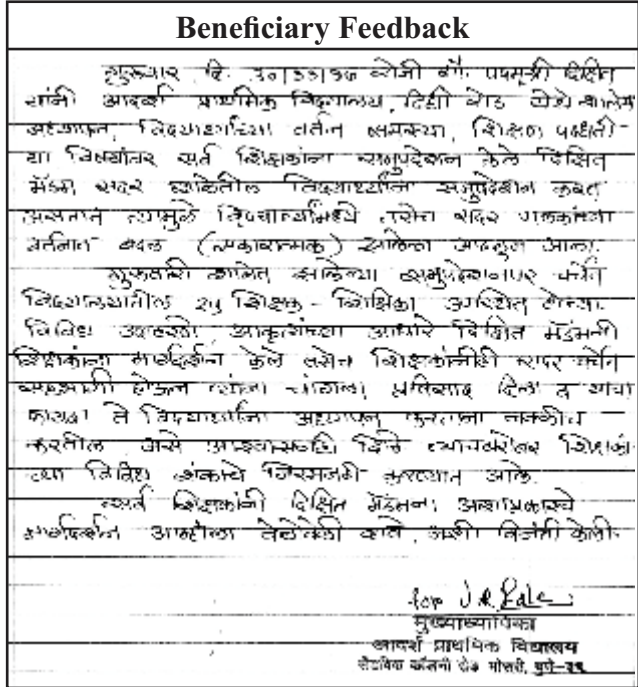 Beneficiary Feedback
गुरुवार दि. रोजी सौ. पद्मश्री दिक्षित
यांनी आदर्श प्राथमिक विद्यालय, दिघी रोड येथे शालेय
अध्यापन, विद्यार्थ्यांच्या वर्तन समस्या, शिक्षण पध्दती
या विषयांवर सर्व शिक्षकांना समुपदेशन केले दिक्षित
मॅडम सदर शाळेतील विद्यार्थ्यांना समुपदेशन करत
असतात त्यामुळे विद्यार्थ्यांमध्ये तसेच सदर पालकांच्या
वर्तनात बदल (सकारात्मक) झालेला आढळून आला.
गुरुवारी शाळेत झालेल्या समुपदेशनपर
विद्यालयातील शिक्षक - शिक्षिका उपस्थित होत्या.
विविध उदाहरणे, आकृत्यांच्या आधारे दिक्षित मॅडमनी
शिक्षकांना मार्गदर्शन केले तसेच शिक्षकांनीही सदर
सहभागी होऊन त्यांना चांगला प्रतिसाद दिला व याचा
फायदा ते विद्यार्थ्यांना अध्यापन करताना नक्कीच
करतील असे आश्वासनही दिले त्याचबरोबर शिक्षकां
च्या विविध शंकांचे निरसनही करण्यात आले.
सर्व शिक्षकांनी दिक्षित मॅडमना अशाप्रकारचे
मार्गदर्शन आम्हाला वेळोवेळी व्हावे, अशी विनंती केली.
for
मुख्याध्यापिका
आदर्श प्राथमिक विद्यालय
सॅंडविक कॉलनी रोड भोसरी, पुणे-३९